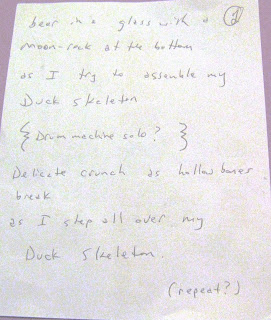 beer in a glass with a
②
moon-rock at the bottom
as I try to assemble my
Duck skeleton
{Drum machine solo?}
Delicate crunch as hollow bones
break
as I step all over my
Duck Skeleton.
(repeat?)